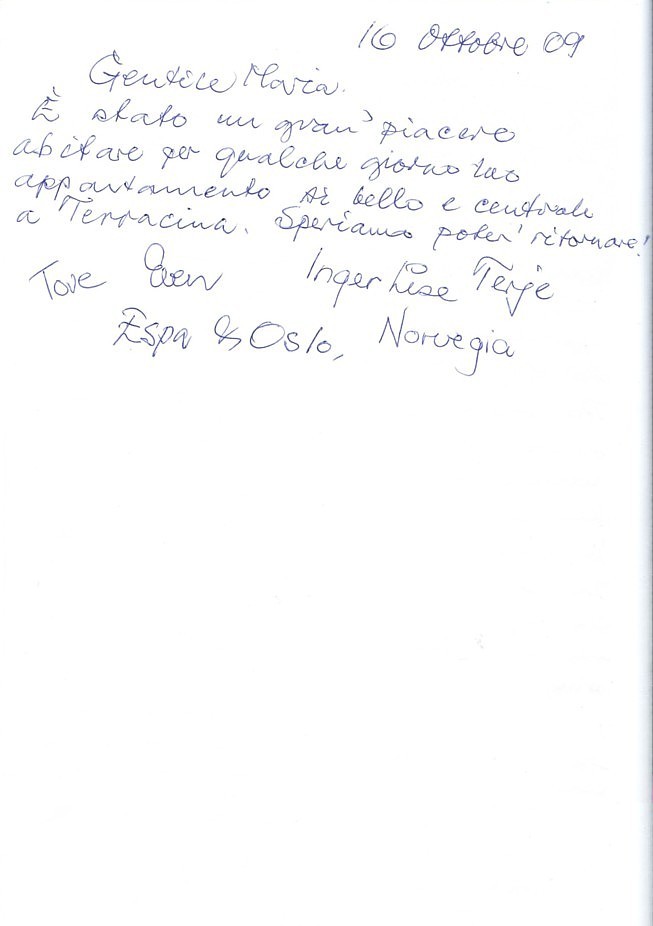 16 Ottobre 09
Gentile Maria.
È stato un gran' piacere
abitare per qualche giorno tuo
appartamento si bello e centrale
a Terracina. Speriamo poter' ritornare!
Tove Even Inger Lise Terje
Espa & Oslo, Norvegia